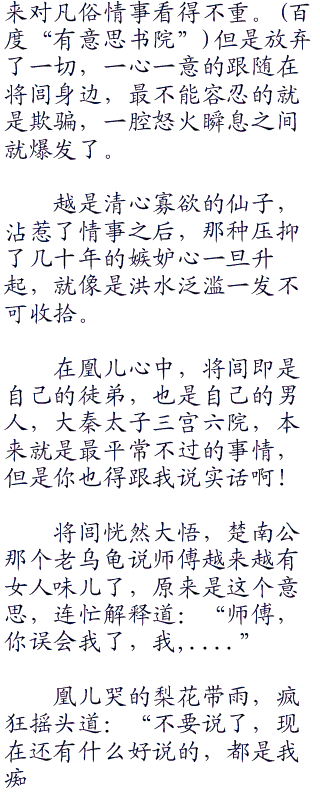 来对凡俗情事看得不重。(百
度“有意思书院”)但是放弃
了一切，一心一意的跟随在
将闾身边，最不能容忍的就
是欺骗，一腔怒火瞬息之间
就爆发了。
越是清心寡欲的仙子，
沾惹了情事之后，那种压抑
了几十年的嫉妒心一旦升
起，就像是洪水泛滥一发不
可收拾。
在凰儿心中，将闾即是
自己的徒弟，也是自己的男
人，大秦太子三宫六院，本
来就是最平常不过的事情，
但是你也得跟我说实话啊！
将闾恍然大悟，楚南公
那个老乌龟说师傅越来越有
女人味儿了，原来是这个意
思，连忙解释道：“师傅，
你误会我了，我,....”
凰儿哭的梨花带雨，疯
狂摇头道：“不要说了，现
在还有什么好说的，都是我
痴